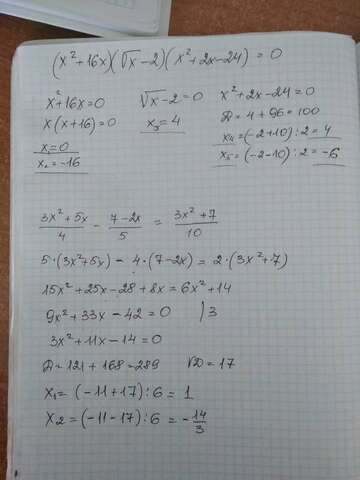 (x² + 16x)(√x − 2)(x² + 2x − 24) = 0
x² + 16x = 0
x(x + 16) = 0
x₁ = 0
x₂ = −16
√x − 2 = 0
x₃ = 4
x² + 2x − 24 = 0
D = 4 + 96 = 100
x₄ = (−2 + 10) : 2 = 4
x₅ = (−2 − 10) : 2 = −6
(3x² + 5x)/4 − (7 − 2x)/5 = (3x² + 7)/10
5·(3x² + 5x) − 4·(7 − 2x) = 2·(3x² + 7)
15x² + 25x − 28 + 8x = 6x² + 14
9x² + 33x − 42 = 0 /3
3x² + 11x − 14 = 0
D = 121 + 168 = 289 √D = 17
x₁ = (−11 + 17) : 6 = 1
x₂ = (−11 − 17) : 6 = −14/3